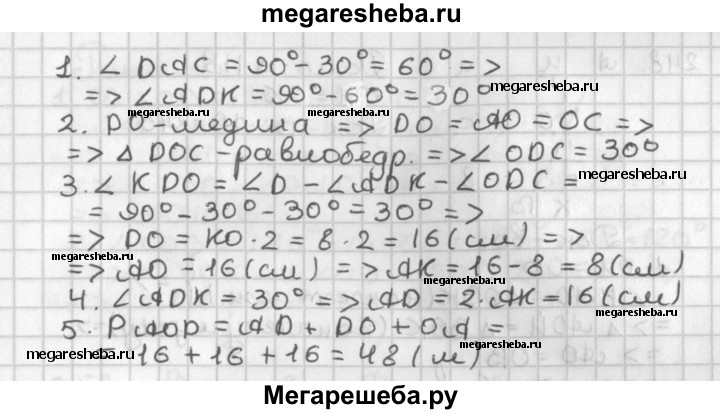 megaresheba.ru
1. ∠ DAC = 90° - 30° = 60° =>
=> ∠ ADK = 90° - 60° = 30°
megaresheba.ru
megaresheba.ru
2. DO - медина => DO = AO = OC =>
=> Δ DOC - равнобедр. => ∠ ODC = 30°
megaresheba.ru
3. ∠ KDO = ∠D - ∠ADK - ∠ODC =
megaresheba.ru
= 90° - 30° - 30° = 30° =>
=> DO = KO · 2 = 8 · 2 = 16 (см) =>
megaresheba.ru
=> AO = 16 (см) => AK = 16 - 8 = 8 (см)
4. ∠ADK = 30° => AD = 2 · AK = 16 (см)
5. PAOP = AD + DO + OA =
megaresheba.ru
= 16 + 16 + 16 = 48 (м)
megaresheba.ru
Мегарешеба.ру